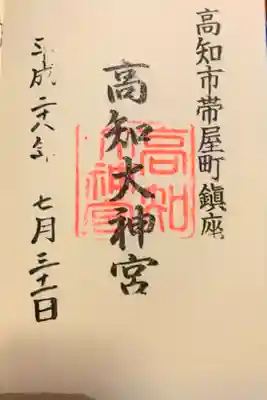 高知市帯屋町鎮座
高知大神宮
高知大神宮
平成二十八年 七月三十一日